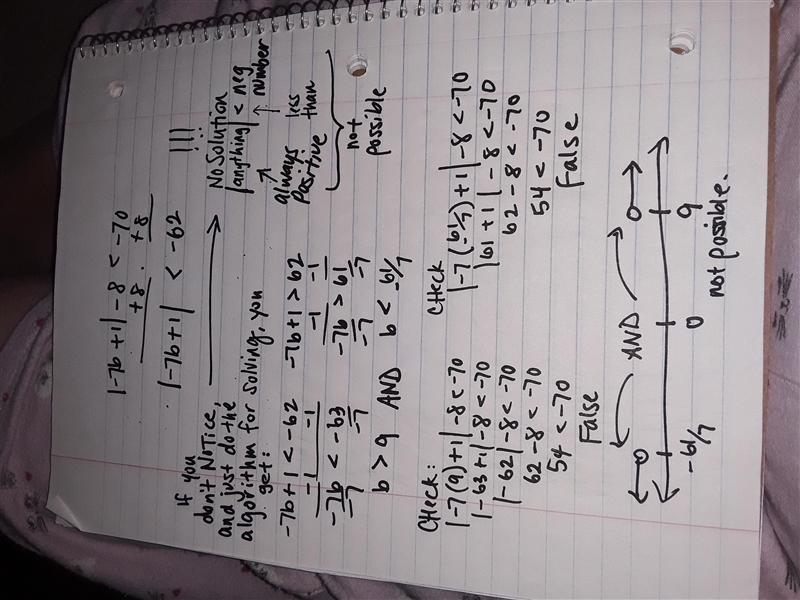 |-7b+1|-8 < -70
+8 . +8
|-7b+1| < -62
!!!
No Solution
|anything| < neg number
always positive less than
not possible
If you
don't NOTICE,
and just do the
algorithm for solving, you
get:
-7b+1 < -62 -7b+1 > 62
-1 -1 -1 -1
-7b < -63 -7b > 61
-7 -7 -7 -7
b > 9 AND b < 61/-7
CHECK:
|-7(9)+1|-8 < -70
|-63+1|-8 < -70
|-62|-8 < -70
62-8 < -70
54 < -70
False
CHECK
|-7(61/-7)+1|-8 < -70
|61+1|-8 < -70
62-8 < -70
54 < -70
False
AND
-61/7 0 9
not possible.